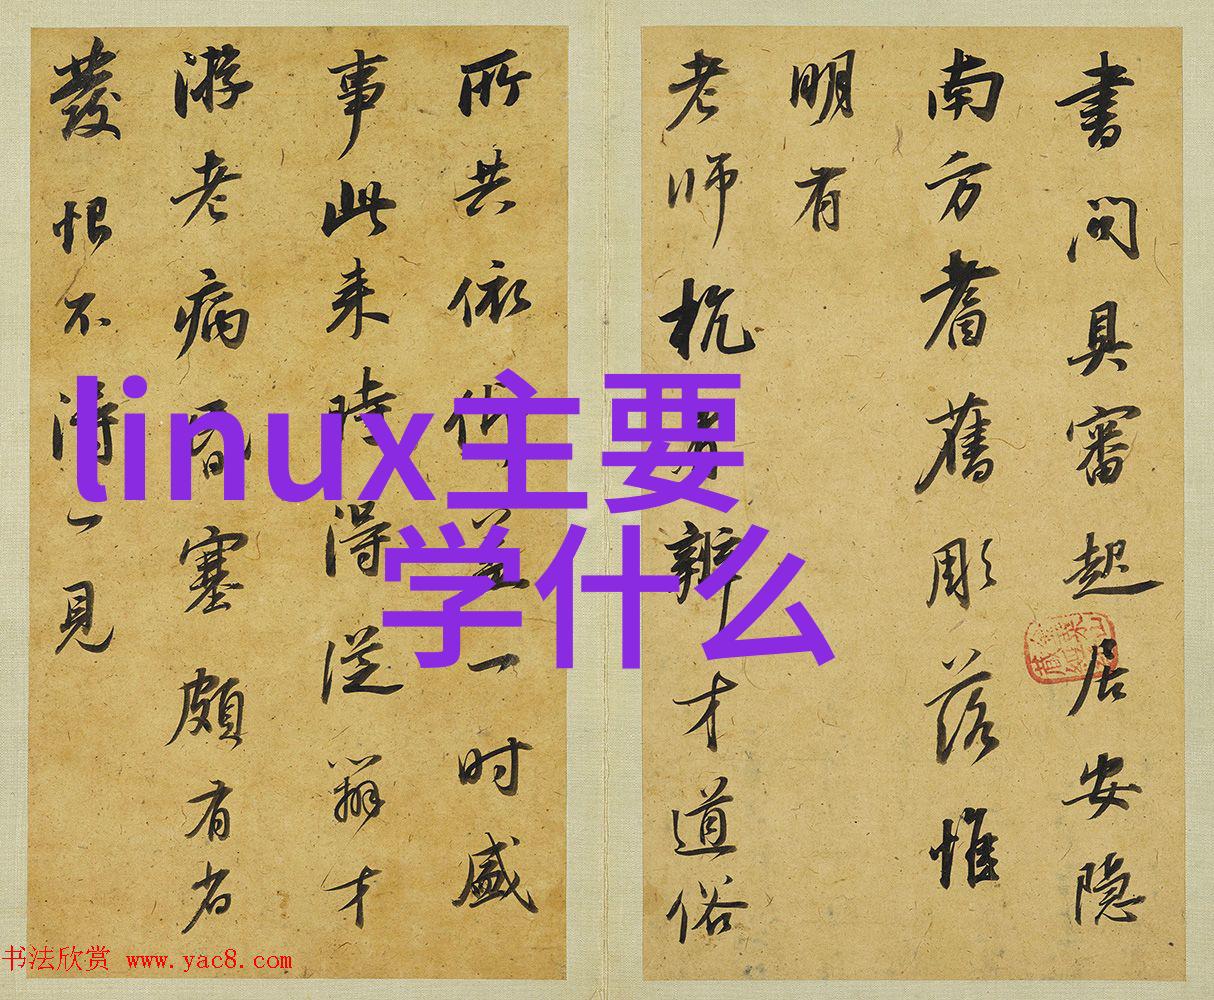 書問具審起居安隱
南方耆舊彫落惟
明有
老師杭有辨才道俗
所共依仰盖一時盛
事此来時得從辯才
游老病昏塞頗有省
發恨不得一見
linux主要
学什么
书法欣赏 www.yac8.com